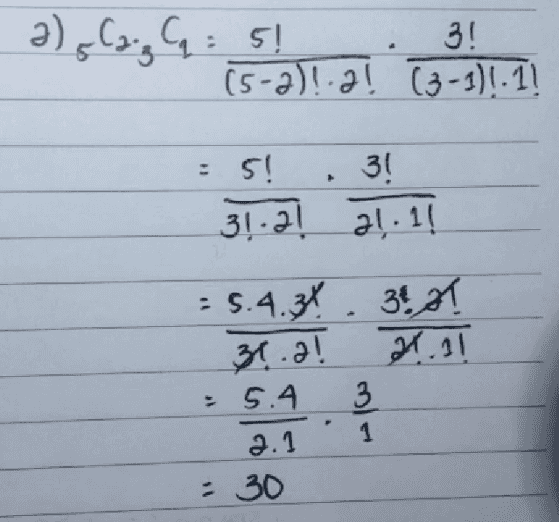 2) ₅C₂.₃C₁ = 5! / (5-2)!.2! . 3! / (3-1)!.1!
= 5! / 3!.2! . 3! / 2!.1!
= 5.4.3! / 3!.2! . 3.2! / 2!.1!
= 5.4 / 2.1 . 3 / 1
= 30